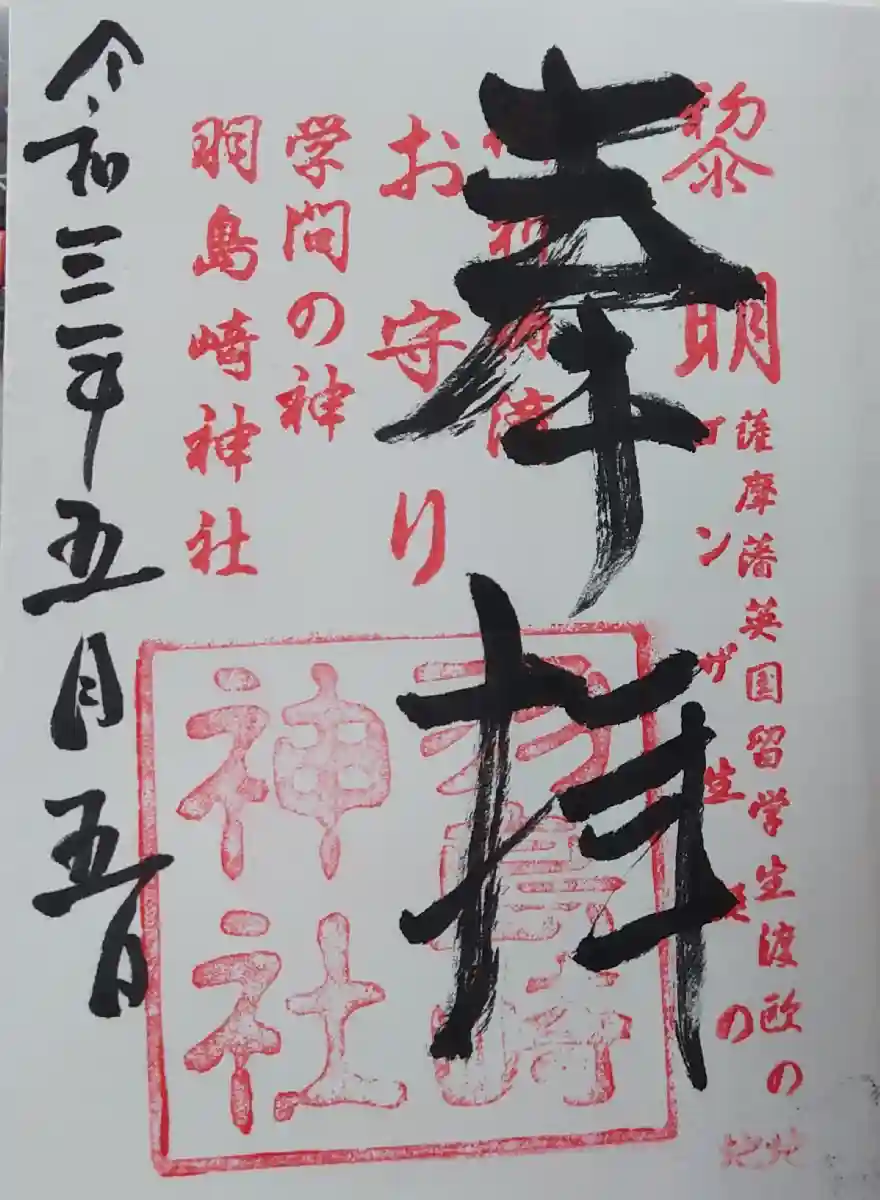 薩摩藩英国留学生渡欧の地
黎明
ゴンザ生誕の地
奉拝
お守り
学問の神
羽島崎神社
羽島崎神社
令和三年五月五日